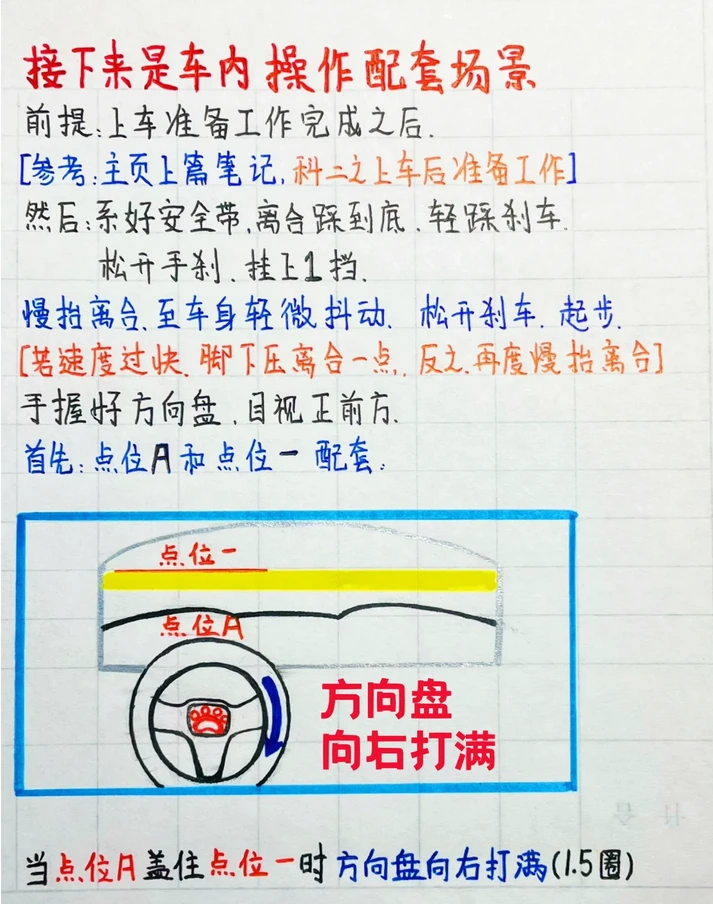 接下来是车内操作配套场景
前提:上车准备工作完成之后.
[参考:主页上篇笔记,科二之上车后准备工作]
然后:系好安全带,离合踩到底,轻踩刹车.
松开手刹.挂上1挡.
慢抬离合,至车身轻微抖动.松开刹车.起步.
[若速度过快,脚下压离合一点,反之,再度慢抬离合]
手握好方向盘,目视正前方.
首先:点位A和点位一配套:
点位一
点位A
方向盘
向右打满
当点位A盖住点位一时方向盘向右打满(1.5圈)